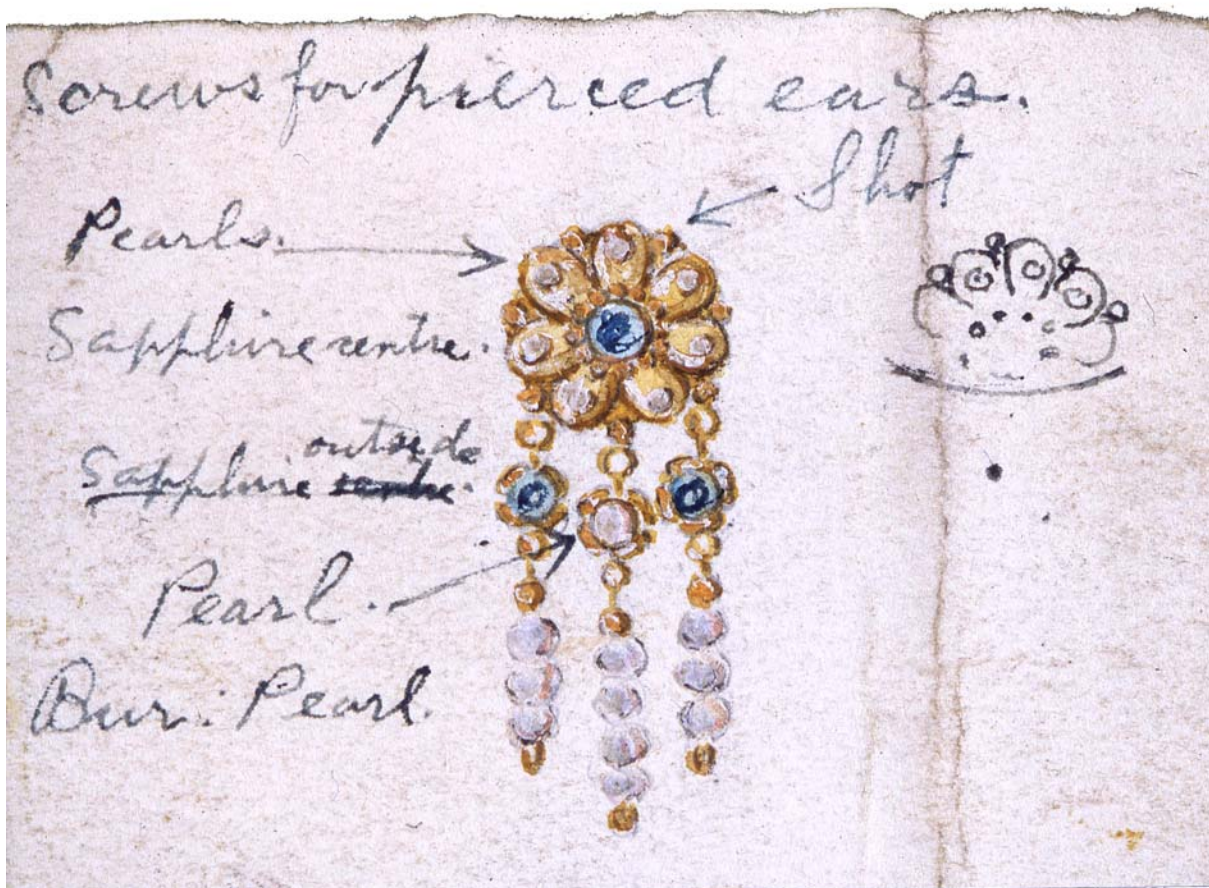 Screws for pierced ears.
Shot
Pearls.
Sapphire centre.
outside
Sapphire centre.
Pearl.
Bur: Pearl.